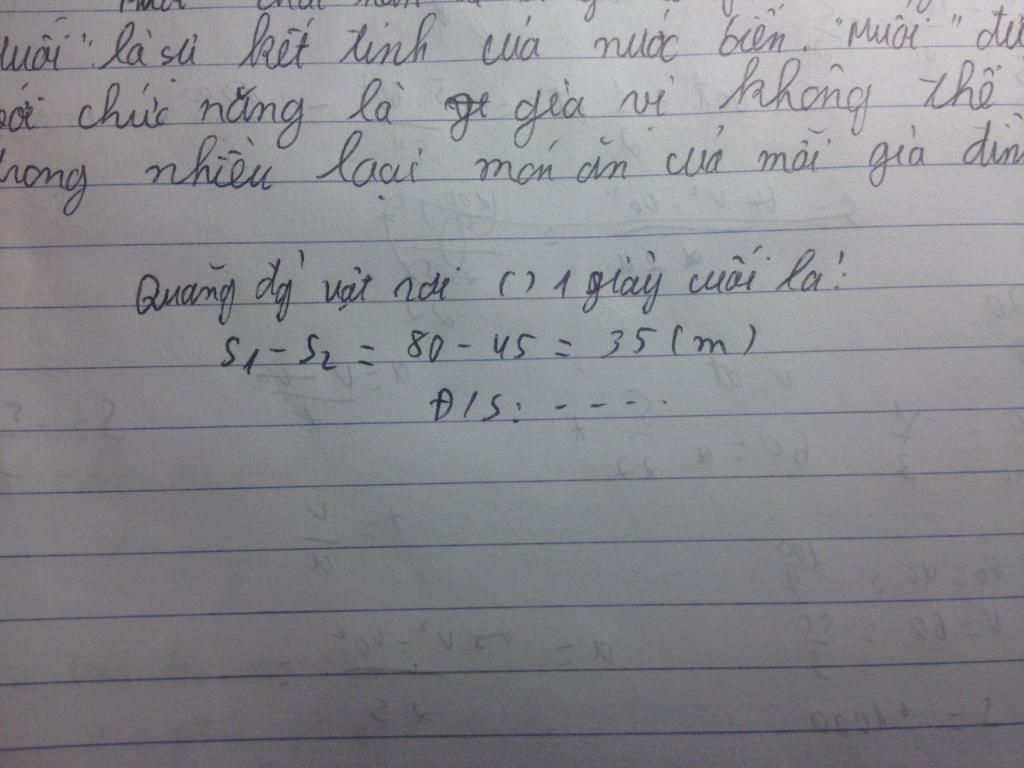 chất
muối" là sự kết tinh của nước biển. "Muối" đư
với chức năng là gia vị không thể
trong nhiều loại món ăn của mỗi gia đìn
Quãng đg vật rơi () 1 giây cuối là:
S1 - S2 = 80 - 45 = 35 (m)
Đ/S: - - - -